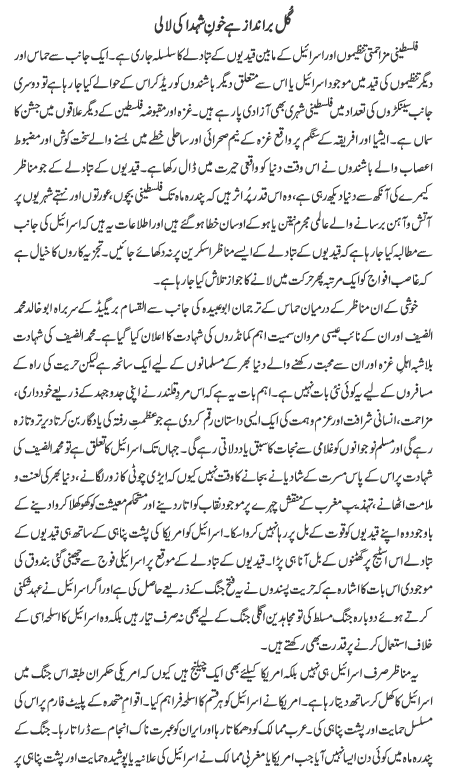 گُل بر انداز ہے خونِ شہدا کی لالی
فلسطینی مزاحمتی تنظیموں اور اسرائیل کے مابین قیدیوں کے تبادلے کا سلسلہ جاری ہے۔ ایک جانب سے حماس اور
دیگر تنظیموں کی قید میں موجود اسرائیل یا اس سے متعلق دیگر باشندوں کو ریڈ کراس کے حوالے کیا جا رہا ہے تو دوسری
جانب سینکڑوں کی تعداد میں فلسطینی شہری بھی آزادی پا رہے ہیں۔ غزہ اور مقبوضہ فلسطین کے دیگر علاقوں میں جشن کا
سماں ہے۔ ایشیا اور افریقہ کے سنگم پر واقع غزہ کے نیم صحرائی اور ساحلی خطے میں بسنے والے سخت کوش اور مضبوط
اعصاب والے باشندوں نے اس وقت دنیا کو واقعی حیرت میں ڈال رکھا ہے۔ قیدیوں کے تبادلے کے جو مناظر
کیمرے کی آنکھ سے دنیا دیکھ رہی ہے، وہ اس قدر پُر اثر ہیں کہ پندرہ ماہ تک فلسطینی بچوں، عورتوں اور نہتے شہریوں پر
آتش و آہن برسانے والے عالمی مجرم نیتن یاہو کے اوسان خطا ہو گئے ہیں اور اطلاعات یہ ہیں کہ اسرائیل کی جانب
سے مطالبہ کیا جا رہا ہے کہ قیدیوں کے تبادلے کے ایسے مناظر اسکرین پر نہ دکھائے جائیں۔ تجزیہ کاروں کا خیال ہے
کہ غاصب افواج کو ایک مرتبہ پھر حرکت میں لانے کا جواز تلاش کیا جا رہا ہے۔
خوشی کے ان مناظر کے درمیان حماس کے ترجمان ابوعبیدہ کی جانب سے القسام بریگیڈ کے سربراہ ابوخالد محمد
الضیف اور ان کے نائب عیسیٰ مروان سمیت اہم کمانڈروں کی شہادت کا اعلان کیا گیا ہے۔ محمد الضیف کی شہادت
بلاشبہ اہلِ غزہ اور ان سے محبت رکھنے والے دنیا بھر کے مسلمانوں کے لیے ایک سانحہ ہے لیکن حریت کی راہ کے
مسافروں کے لیے یہ کوئی نئی بات نہیں ہے۔ اہم بات یہ ہے کہ اس مردِ قلندر نے اپنی جدوجہد کے ذریعے خودداری،
مزاحمت، انسانی شرافت اور عزم و ہمت کی ایک ایسی داستان رقم کر دی ہے جو عظمتِ رفتہ کی یادگار بن کر تا دیر تر و تازہ
رہے گی اور مسلم نوجوانوں کو غلامی سے نجات کا سبق یاد دلاتی رہے گی۔ جہاں تک اسرائیل کا تعلق ہے تو محمد الضیف کی
شہادت پر اس کے پاس مسرت کے شادیانے بجانے کا وقت نہیں کیوں کہ ایڑی چوٹی کا زور لگانے، دنیا بھر کی لعنت و
ملامت اٹھانے، تہذیبِ مغرب کے منقش چہرے پر موجود نقاب کو اتار دینے اور مستحکم معیشت کو کھوکھلا کروا دینے کے
باوجود وہ اپنے قیدیوں کو قوت کے بل پر رہا نہیں کروا سکا۔ اسرائیل کو امریکا کی پشت پناہی کے ساتھ ہی قیدیوں کے
تبادلے اس اسٹیج پر گھٹنوں کے بل آنا ہی پڑا۔ قیدیوں کے تبادلے کے موقع پر اسرائیلی فوج سے چھینی گئی بندوق کی
موجودی اس بات کا اشارہ ہے کہ حریت پسندوں نے یہ فتح جنگ کے ذریعے حاصل کی ہے اور اگر اسرائیل نے عہد شکنی
کرتے ہوئے دوبارہ جنگ مسلط کی تو مجاہدین اگلی جنگ کے لیے بھی نہ صرف تیار ہیں بلکہ وہ اسرائیل کا اسلحہ اسی کے
خلاف استعمال کرنے پر قدرت بھی رکھتے ہیں۔
یہ مناظر صرف اسرائیل ہی نہیں بلکہ امریکا کیلئے بھی ایک چیلنج ہیں کیوں کہ امریکی حکمران طبقہ اس جنگ میں
اسرائیل کا کھل کر ساتھ دیتا رہا ہے۔ امریکا نے اسرائیل کو ہر قسم کا اسلحہ فراہم کیا۔ اقوامِ متحدہ کے پلیٹ فارم پر اس کی
مسلسل حمایت اور پشت پناہی کی۔ عرب ممالک کو دھمکاتا رہا اور ایران کو عبرت ناک انجام سے ڈراتا رہا۔ جنگ کے
پندرہ ماہ میں کوئی دن ایسا نہیں آیا جب امریکا یا مغربی ممالک نے اسرائیل کی علانیہ یا پوشیدہ حمایت اور پشت پناہی پر